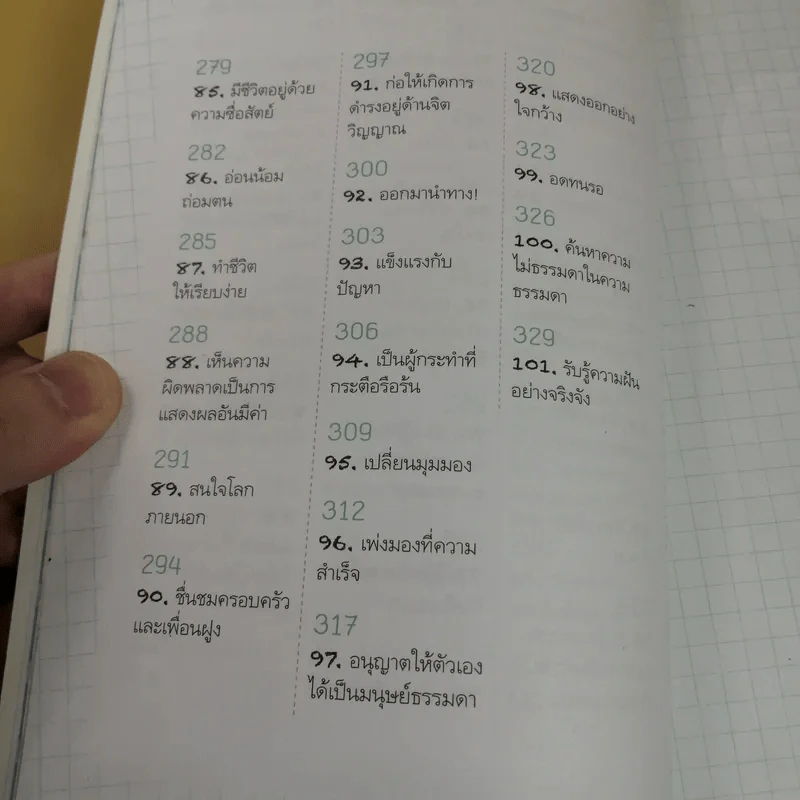 279
85. มีชีวิตอยู่ด้วย
ความซื่อสัตย์
282
86. อ่อนน้อม
ถ่อมตน
285
87. ทำชีวิต
ให้เรียบง่าย
288
88. เห็นความ
ผิดพลาดเป็นการ
แสดงผลอันมีค่า
291
89. สนใจโลก
ภายนอก
294
90. ชื่นชมครอบครัว
และเพื่อนฝูง
297
91. ก่อให้เกิดการ
ดำรงอยู่ด้านจิต
วิญญาณ
300
92. ออกมานำทาง!
303
93. แข็งแรงกับ
ปัญหา
306
94. เป็นผู้กระทำที่
กระตือรือร้น
309
95. เปลี่ยนมุมมอง
312
96. เพ่งมองที่ความ
สำเร็จ
317
97. อนุญาตให้ตัวเอง
ได้เป็นมนุษย์ธรรมดา
320
98. แสดงออกอย่าง
ใจกว้าง
323
99. อดทนรอ
326
100. ค้นหาความ
ไม่ธรรมดาในความ
ธรรมดา
329
101. รับรู้ความฝัน
อย่างจริงจัง